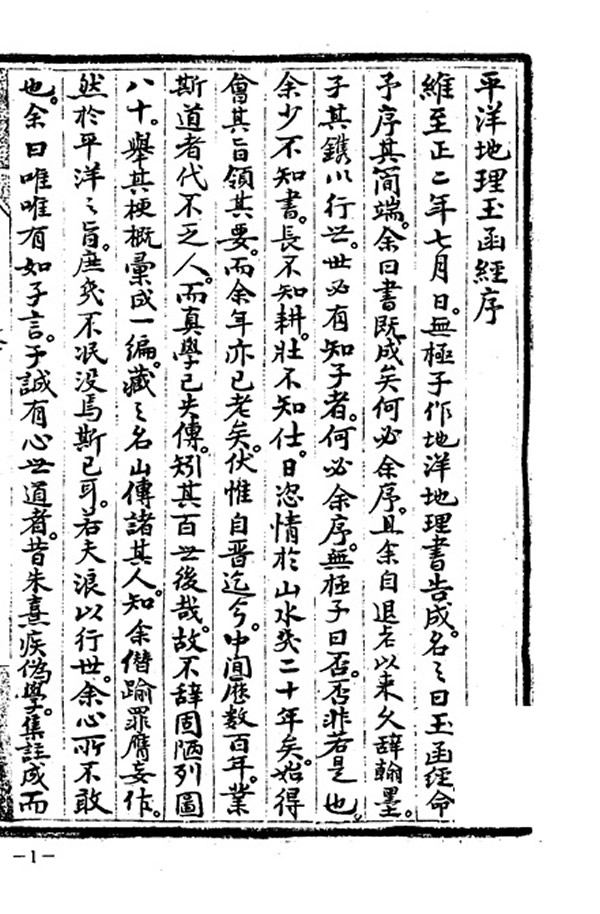 平洋地理玉函經序
維至正二年七月日。無極子作地洋地理書告成。名之曰玉函經命
予序其簡端。余曰書既成矣何必余序。且余自退老以来久辞翰墨。
子其鐫以行世。世必有知子者。何必余序。無極子曰否。否非若是也。
余少不知書。長不知耕。壯不知仕。日恣情於山水幾二十年矣。始得
會其旨領其要。而余年亦已老矣。伏惟自晋迄今。中间歷数百年。業
斯道者代不乏人。而真學已失傳。矧其百世後哉。故不辞固陋列圖
八十。舉其梗概彙成一编。藏之名山傳諸其人。知余僭踰罪膺妄作。
然於平洋之旨。庶幾不泯没焉斯已耳。若夫浪以行世。余心所不敢
也。余曰唯唯有如子言。予誠有心世道者。昔朱熹疾偽學。集註成而
－1－